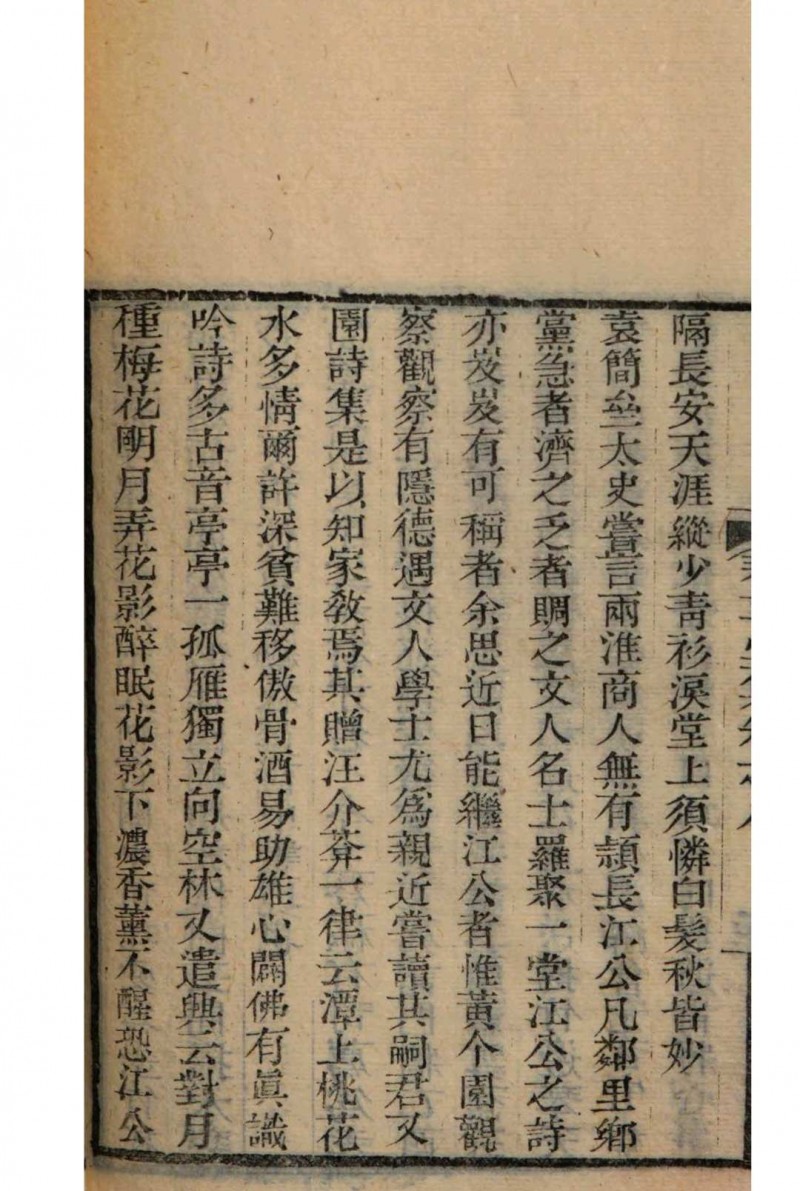 隔長安天涯縱少靑衫淚堂上須憐白髮秋皆妙
袁簡亝太史嘗言兩淮商人無有頴長江公凡鄰里鄉
黨急者濟之乏者賙之文人名士羅聚一堂江公之詩
亦岌岌有可稱者余思近日能繼江公者惟黃个園觀
察觀察有隱德遇文人學士尤爲親近嘗讀其嗣君又
園詩集是以知家敎焉其贈汪介莽一律云潭上桃花
水多情爾許深貧難移傲骨酒易助雄心闢佛有眞識
吟詩多古音亭亭一孤雁獨立向空林又遣興云對月
種梅花明月弄花影醉眠花影下濃香薰不醒恐江公